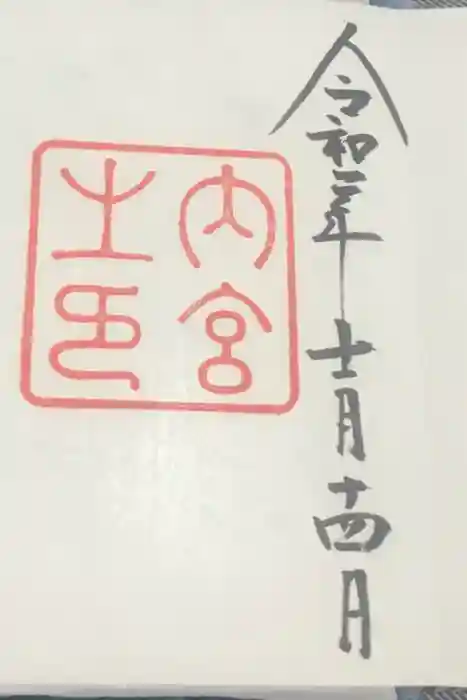 令和二年十一月十四日
内宮
之印